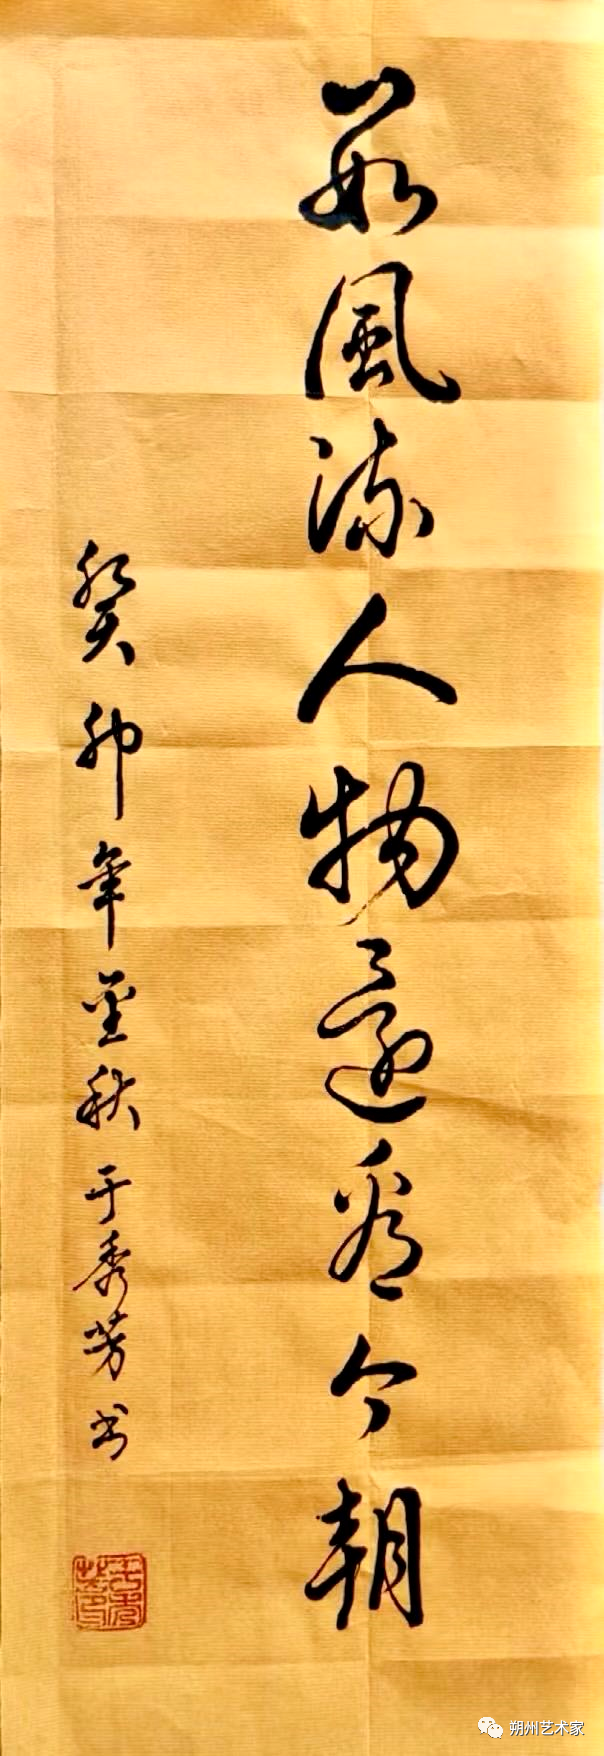 数风流人物还看今朝
癸卯年金秋于秀芳书
朔州艺术家